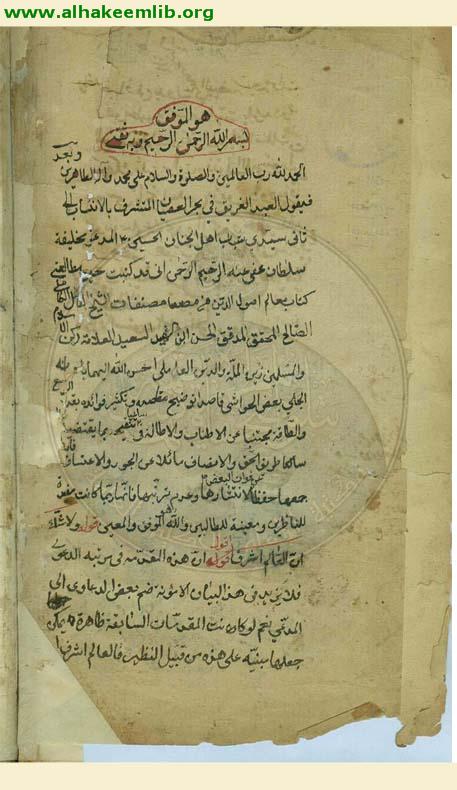 www.alhakeemlib.org
هو الموفق
بسم الله الرحمن الرحيم وبه ثقتي
الحمد لله رب العالمين والصلوة والسلام على محمد وآله الطاهرين وبعد
فيقول العبد الغريق في بحر العصيان المتشرف بالانتساب الى
ثاني سيدي شباب اهل الجنان الحسيني المدعو بخليفة
سلطان عفى عنه الرحيم الرحمن اني قد كتبت حين مطالعتي
كتاب معالم اصول الدين من مصنفات الشيخ الفاضل
الصالح المحقق المدقق الحسن ابن الشهيد السعيد العلامة زين الاسلام
والمسلمين زين الملة والدين العاملي احسن الله اليهما بلطفه
الجلي بعض الحواشي قاصدا توضيح مقاصده وتكثير فوائده بقدر الوسع
والطاقة مجتنبا عن الاطناب والاطالة
سالكا طريق الحق والانصاف مائلا عن الجور والاعتساف
جمعها حفظا لانتشارها وعدم ترتيبها فانها ربما كانت مفيدة
للناظرين ومعينة للطالبين والله الموفق والمعين قوله ولا شك
ان العالم اشرف اقول ان هذه المقدمة مرتبة الدعوى
فلا يزيد في هذا البيان الا مؤنة ضم بعض الدعاوى الى
المدعى نعم لو كانت المقدمات السابقة ظاهرة
جعلها مبنية على هذه من قبيل النظير فالعالم اشرف